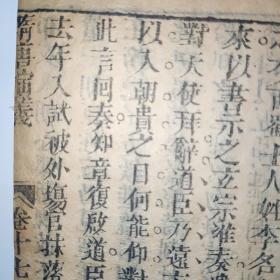 士人姓李名
來以書示之玄宗准奏
對天使拜辭道臣乃遠
以入朝貴之日何能仰對
此言何奏知章復啟道臣
去年入試被外塲官抹落
隋唐演義 卷十七